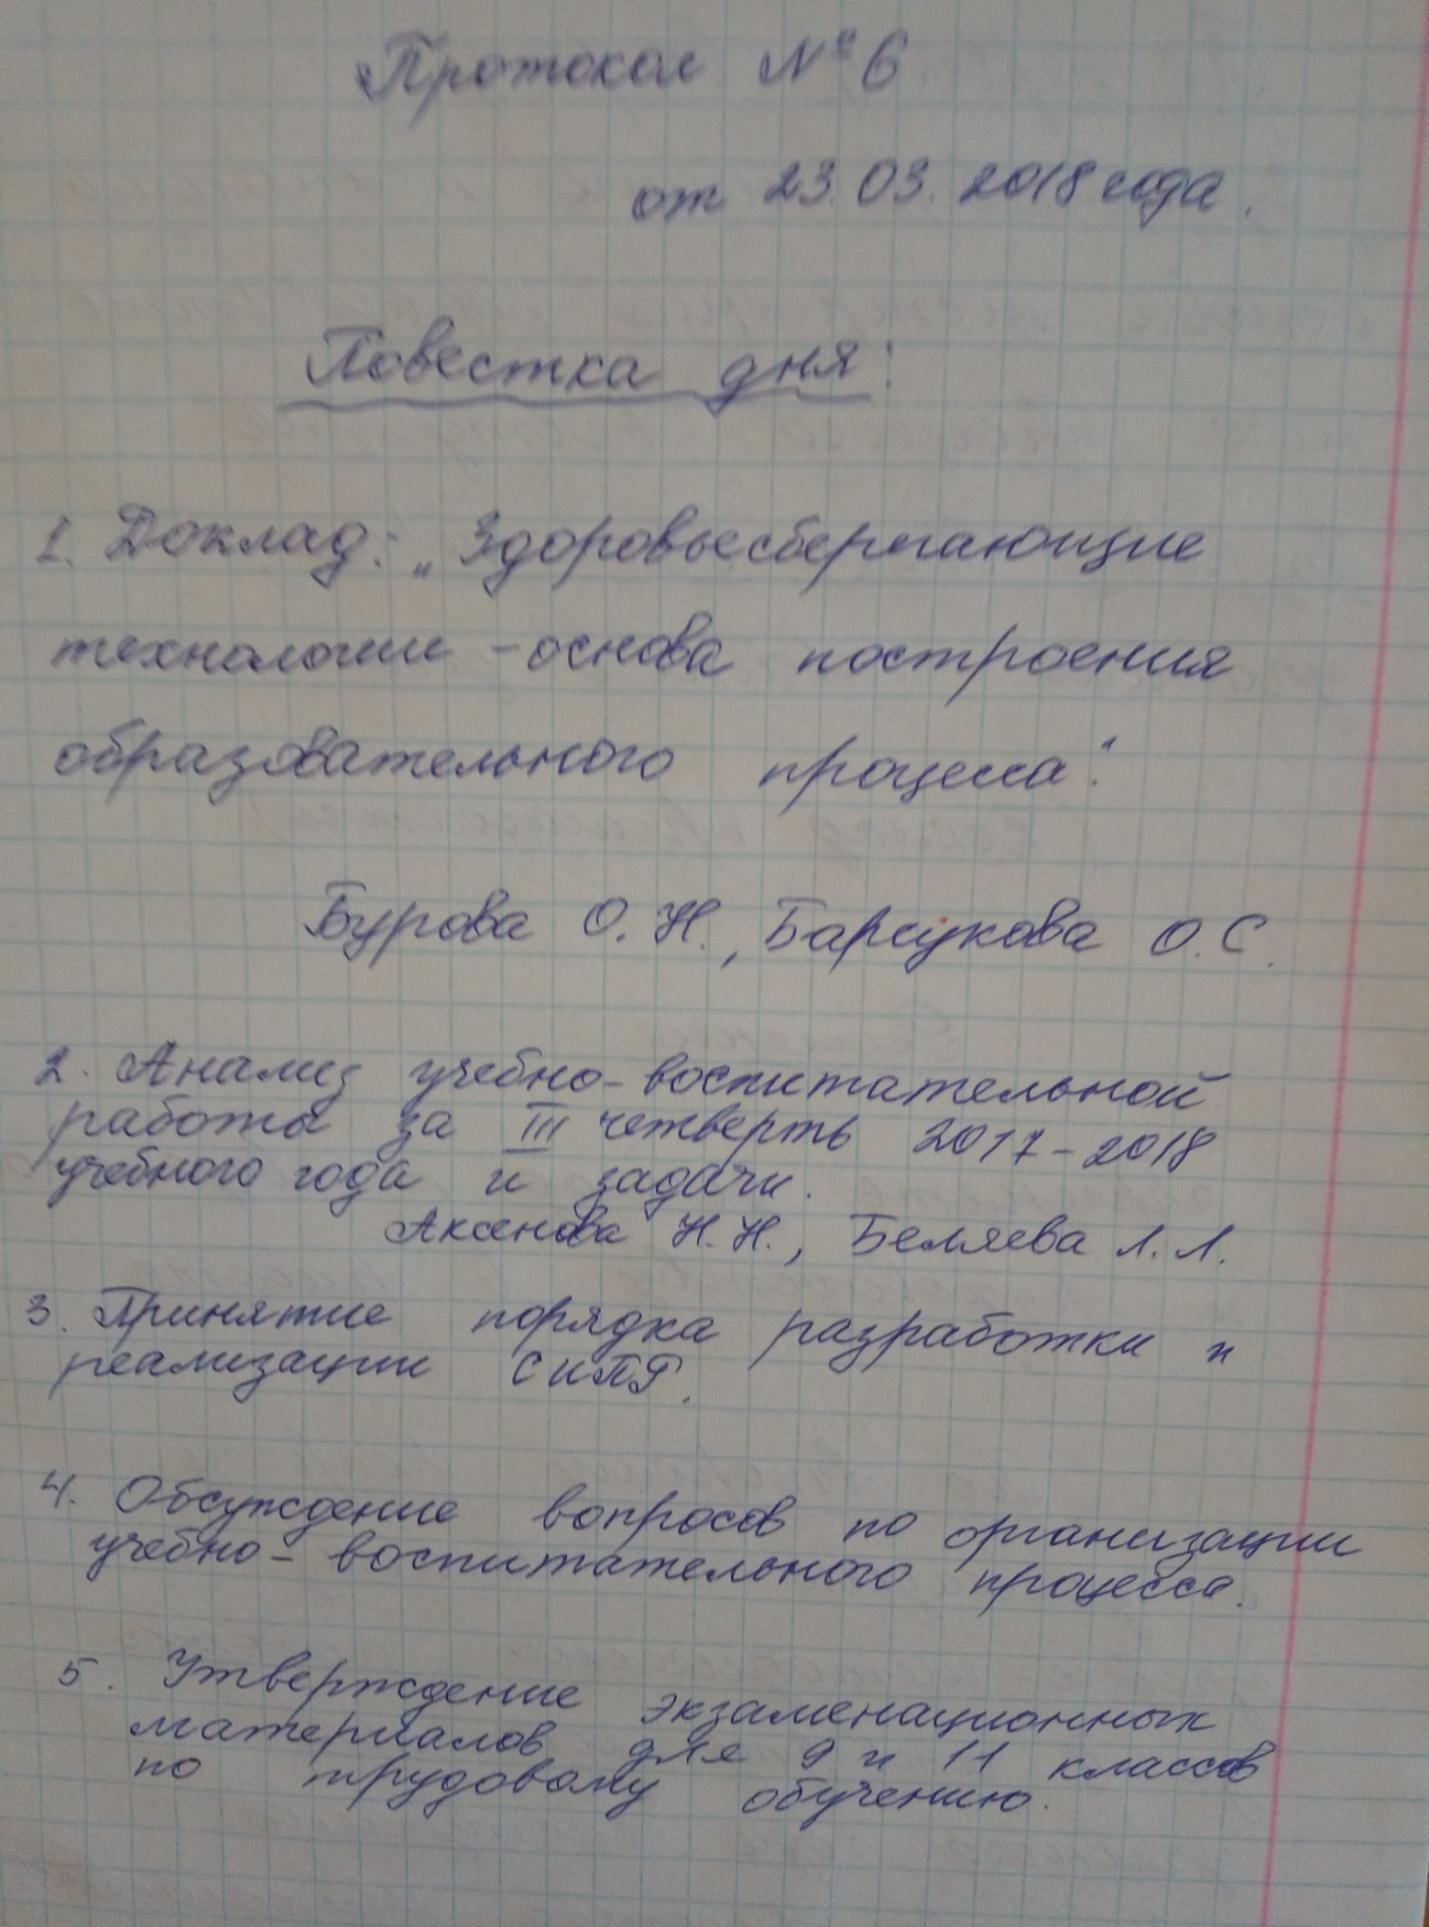 Протокол № 6
от 23.03.2018 года.
Повестка дня:
1. Доклад: „Здоровьесберегающие
технологии - основа построения
образовательного процесса".
Бурова О.Н., Барсукова О.С.
2. Анализ учебно-воспитательной
работы за III четверть 2017-2018
учебного года и задачи.
Аксенова Н.Н., Беляева Л.Л.
3. Принятие порядка разработки и
реализации СИПР.
4. Обсуждение вопросов по организации
учебно-воспитательного процесса.
5. Утверждение экзаменационных
материалов для 9 и 11 классов
по трудовому обучению.